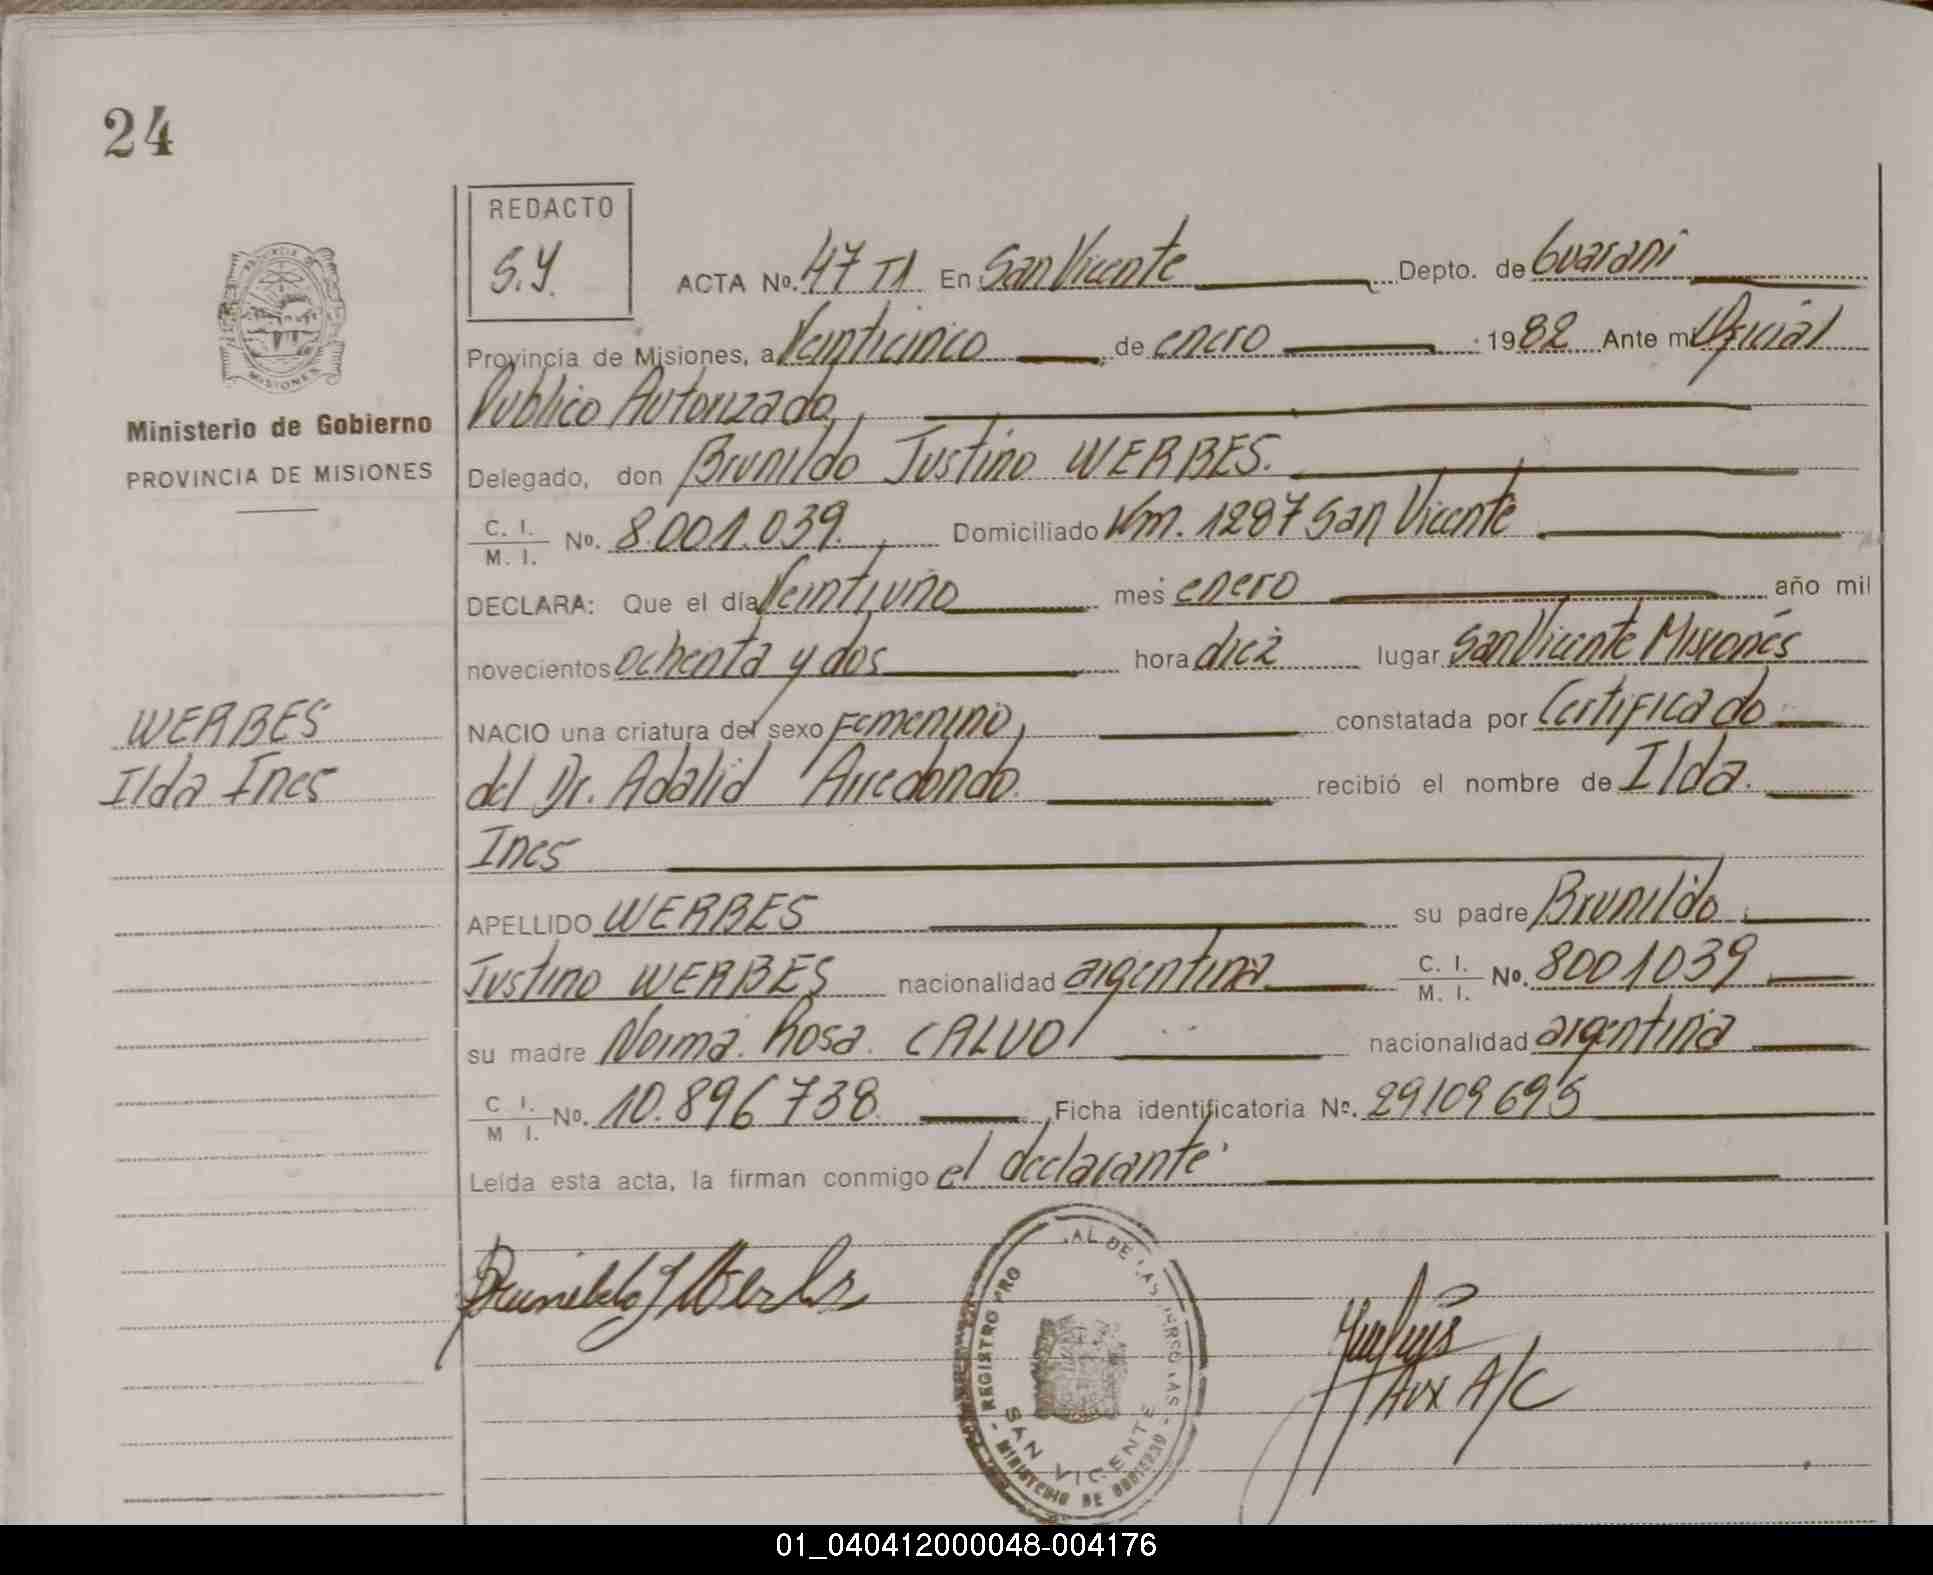 24
REDACTO
S.Y.
ACTA No. 47 T1 En San Vicente Depto. de Guarani
Provincia de Misiones, a Veinticinco de enero 1982 Ante mi Oficial
Publico Autorizado,
Delegado, don Brunildo Justino WERBES.
C. I. M. I. No. 8.001.039. Domiciliado Km. 1287 San Vicente
DECLARA: Que el día Veintiuno mes enero año mil
novecientos ochenta y dos hora diez lugar San Vicente Misiones
NACIO una criatura del sexo Femenino, constatada por Certificado
del Dr. Adalid Arredondo. recibió el nombre de Ilda.
Ines
APELLIDO WERBES su padre Brunildo
Justino WERBES nacionalidad argentina C. I. M. I. No. 8001039
su madre Norma Rosa CALVO nacionalidad argentina
C I. M I. No. 10.896738 Ficha identificatoria No. 29109695
Leída esta acta, la firman conmigo el declarante
PROVINCIA DE
MISIONES
Ministerio de Gobierno
PROVINCIA DE MISIONES
WERBES
Ilda Ines
Brunildo J Werbes
REGISTRO PRO AL DE LAS PERSONAS
SAN VICENTE
MINISTERIO DE GOBIERNO
Aux A/C
01_040412000048-004176